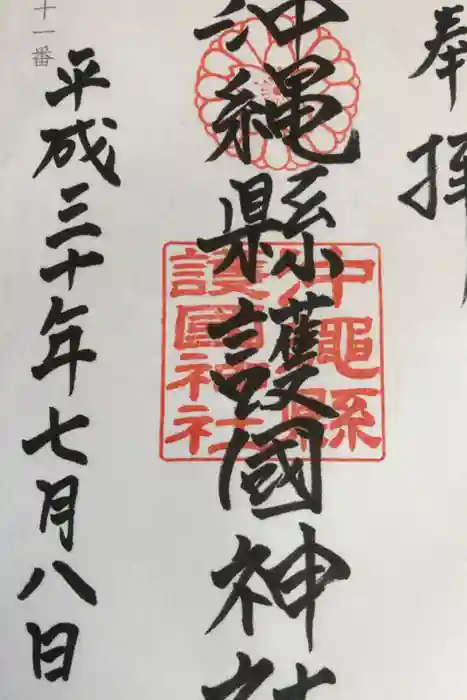 奉拝
沖縄縣護國神社
沖繩縣
護國神社
平成三十年七月八日
十一番